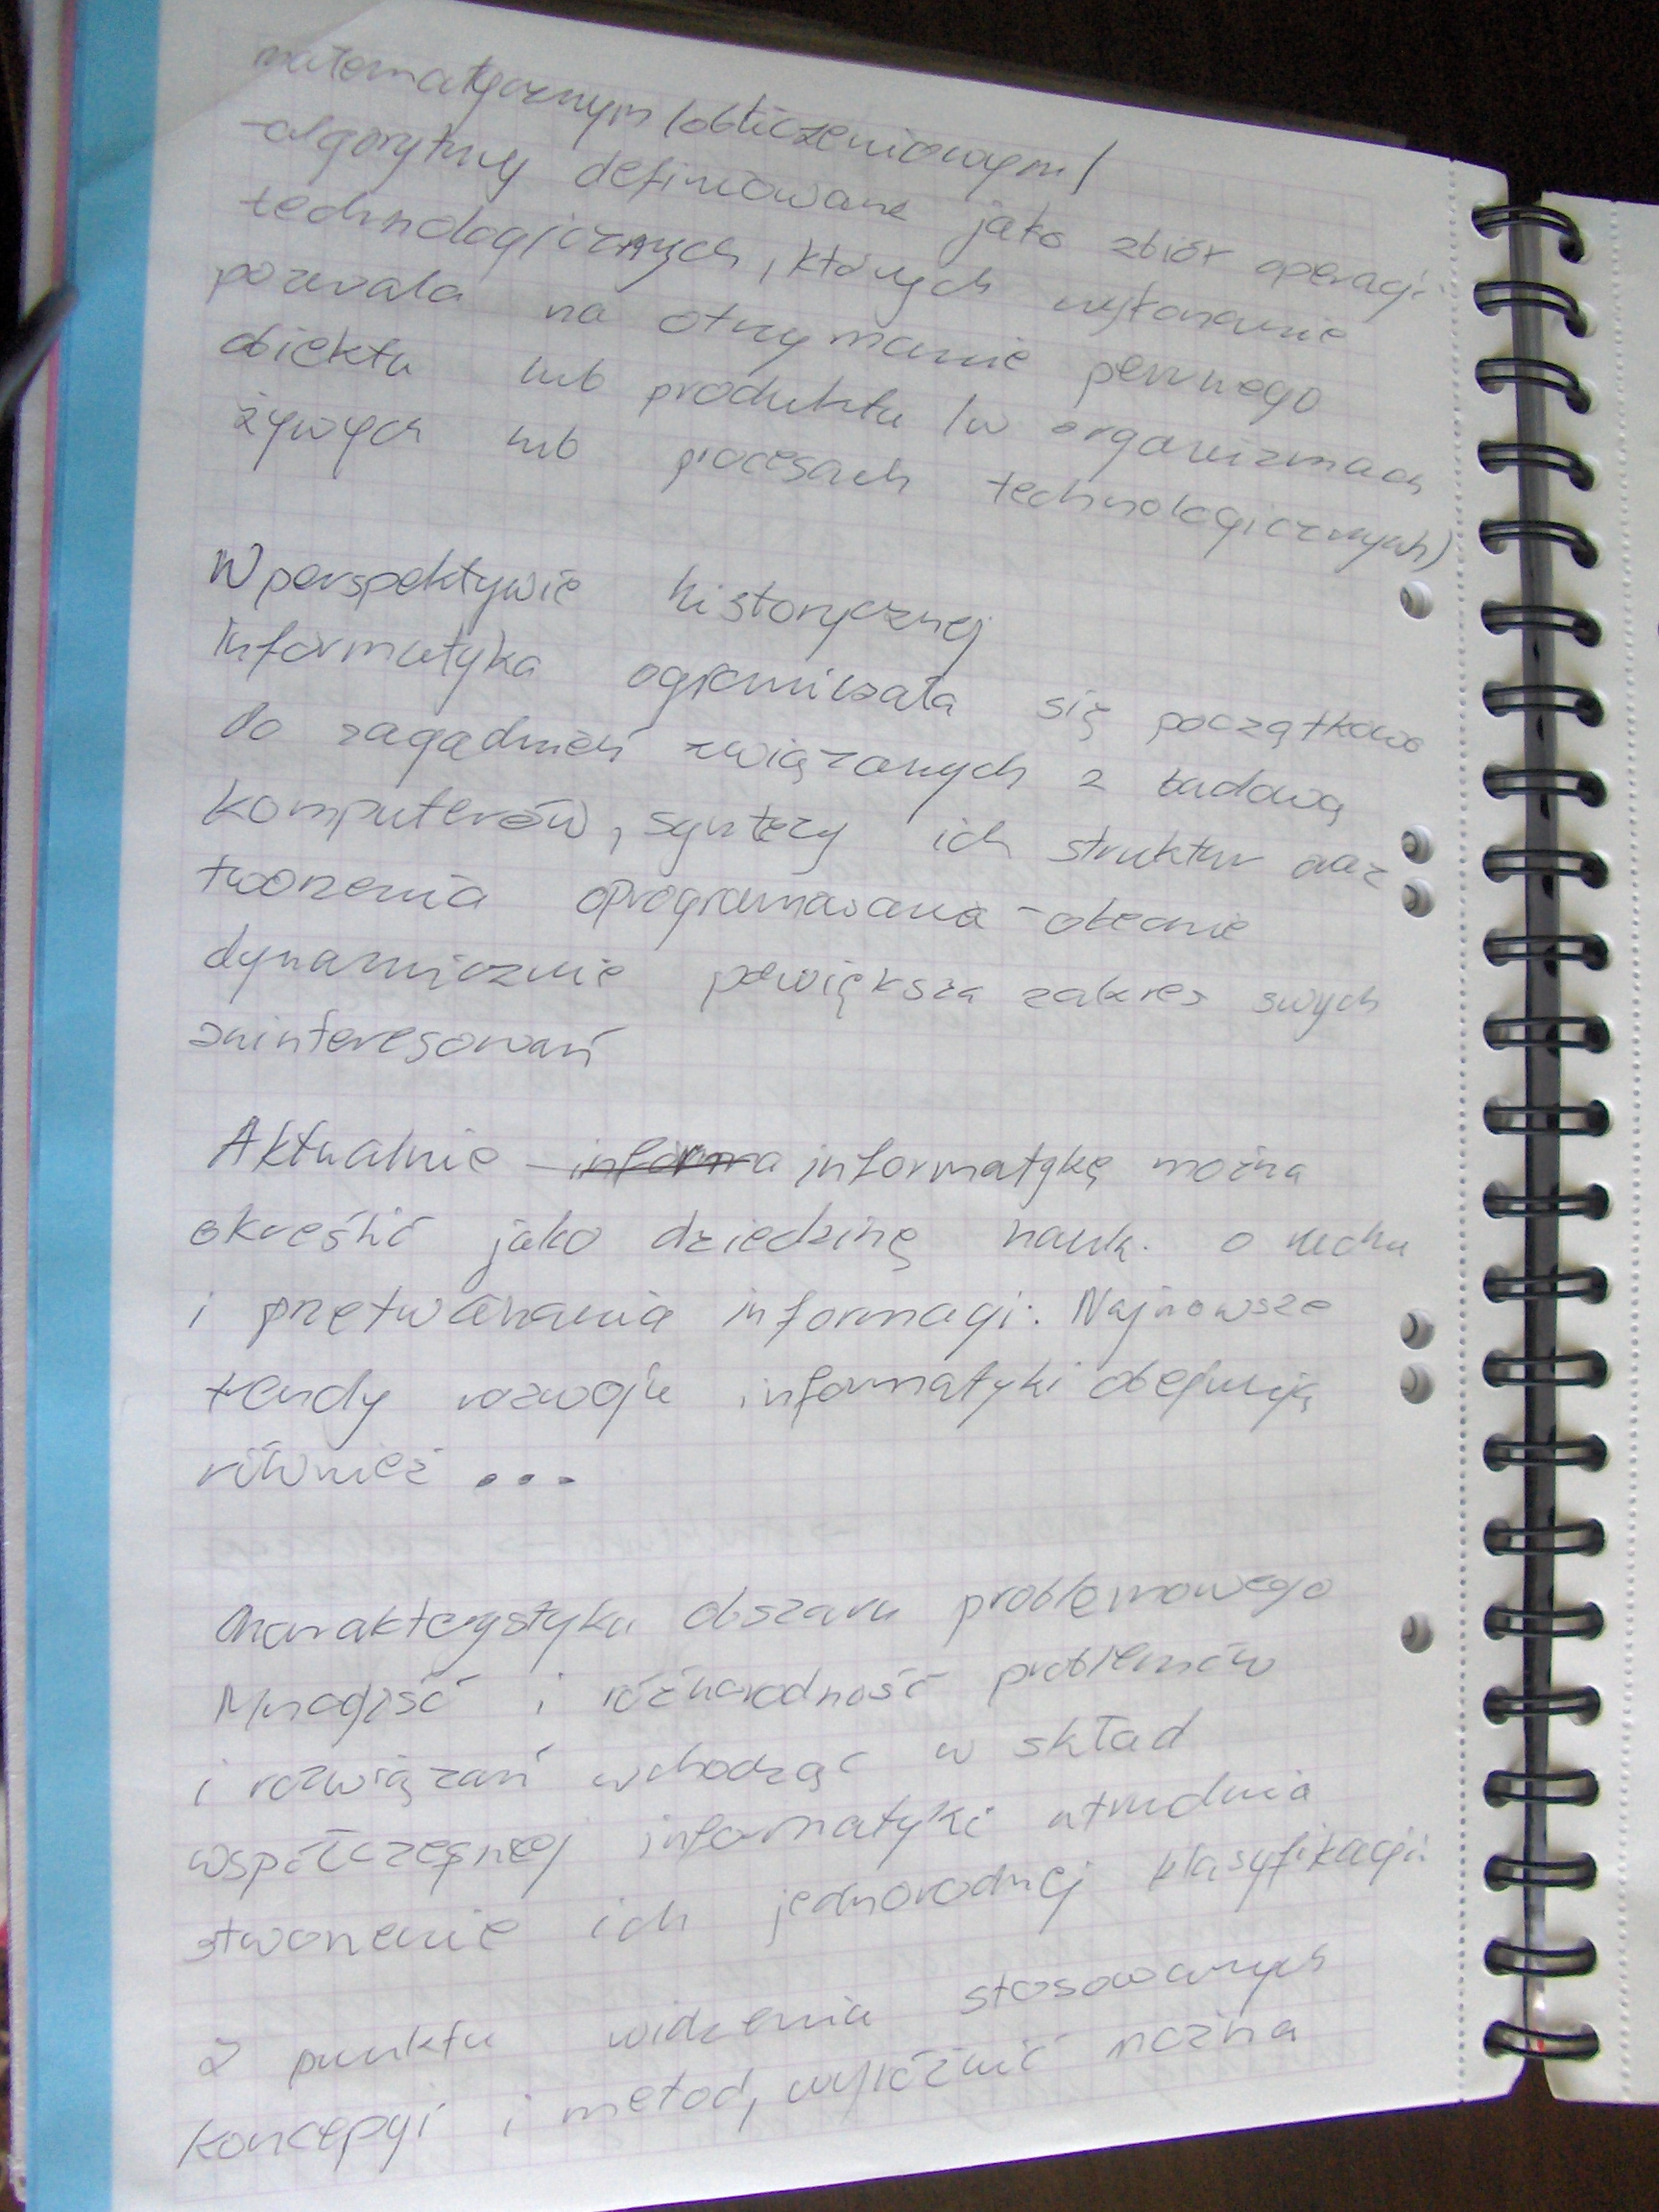 matematycznym /obliczeniowym/
-algorytmy definiowane jako zbiór operacji
technologicznych, których wykonanie
pozwala na otrzymanie pewnego
obiektu lub produktu /w organizmach
żywych lub procesach technologicznych)
W perspektywie historycznej
informatyka ograniczała się początkowo
do zagadnień związanych z budową
komputerów, syntezy ich struktur oraz
tworzenia oprogramowania - obecnie
dynamicznie powiększa zakres swych
zainteresowań
Aktualnie informa informatykę można
określić jako dziedzinę nauk. o ruchu
i przetwarzania informacji. Najnowsze
trendy rozwoju informatyki obejmują
również ...
Charakterystyka obszaru problemowego
Mnogość i różnorodność problemów
i rozwiązań wchodząc w skład
współczesnej informatyki utrudnia
stworzenie ich jednorodnej klasyfikacji
Z punktu widzenia stosowanych
koncepcji i metod, wyróżnić można